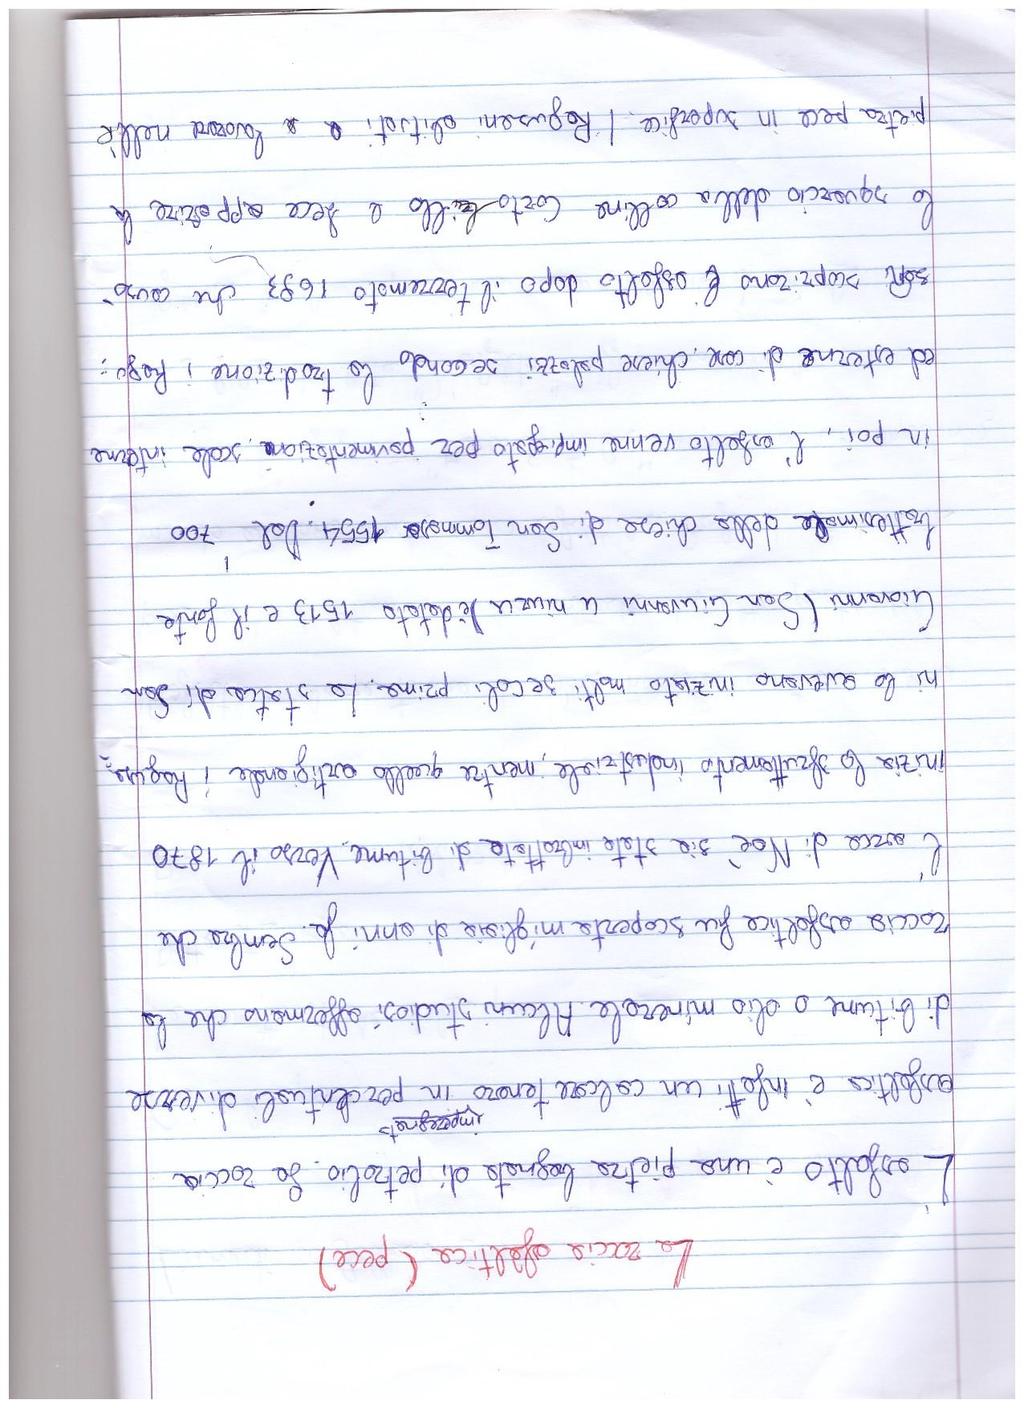 La roccia asfaltica (pece)
L'asfalto è una pietra bagnata di petrolio. La roccia
impregnato
asfaltica è infatti un calcare tenero in percentuali diverse
di bitume o olio minerale. Alcuni studiosi affermano che la
roccia asfaltica fu scoperta migliaia di anni fa. Sembra che
l'arca di Noè sia stata imbrattata di bitume. Verso il 1870
inizia lo sfruttamento industriale, mentre quello artigianale i Ragusa=
ni lo avevano iniziato molti secoli prima. La statua di San
Giovanni (San Giuvanni u niuru) è datata 1513 e il fonte
battesimale della chiesa di San Tommaso 1554. Dal '700
in poi, l'asfalto venne impiegato per pavimentazione, scale interne
ed esterne di case, chiese palazzi secondo la tradizione i Ragu=
sani scoprirono l'asfalto dopo il terremoto 1693 che causò
lo squarcio della collina Cortolillo e fece apparire la
pietra pece in superficie. I Ragusani abituati a lavorare nelle